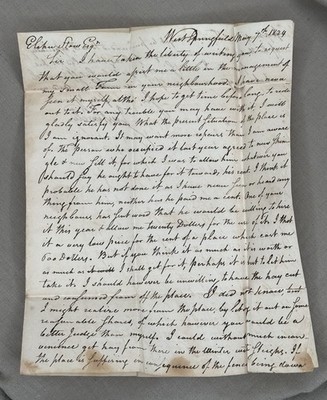 Elihu Stow Esqr. West Springfield May 7th. 1829
Sir I have taken the liberty of writing you to request
that you would assist me a little in the management of
my Small Farm in your neighbourhood. I have never
seen it myself, altho' I hope to get time before long, to ride
out to it. For any trouble you may have with it I will
gladly satisfy you. What the present situation of the place is
I am ignorant. It may want more repairs than I am aware
of. The Person who occupied it last year agreed to
& for which I was to allow him whatever you
should say he ought to have for it towards his rent. I think it
probable he has not done it as I have never seen or heard any
thing from him, neither has he paid me a cent. One of your
neighbours has sent word that he would be willing to hire
it this year & allow me twenty Dollars for the use of it. I think
it a very low price for the rent of a place which cost me
600 Dollars. But if you think it as much as it is worth or
as much as it would I shall get for it, perhaps it is best to let him
take it. I should however be unwilling to have the hay cut
and consumed from off the place. I did not know but
I might realize more from the place by letting it out on some
reasonable shares, of which however you would be a
better Judge than myself. I could without much incon-
venience get hay from there in the Winter with Sleighs. If
the place is suffering in consequence of the fence being down